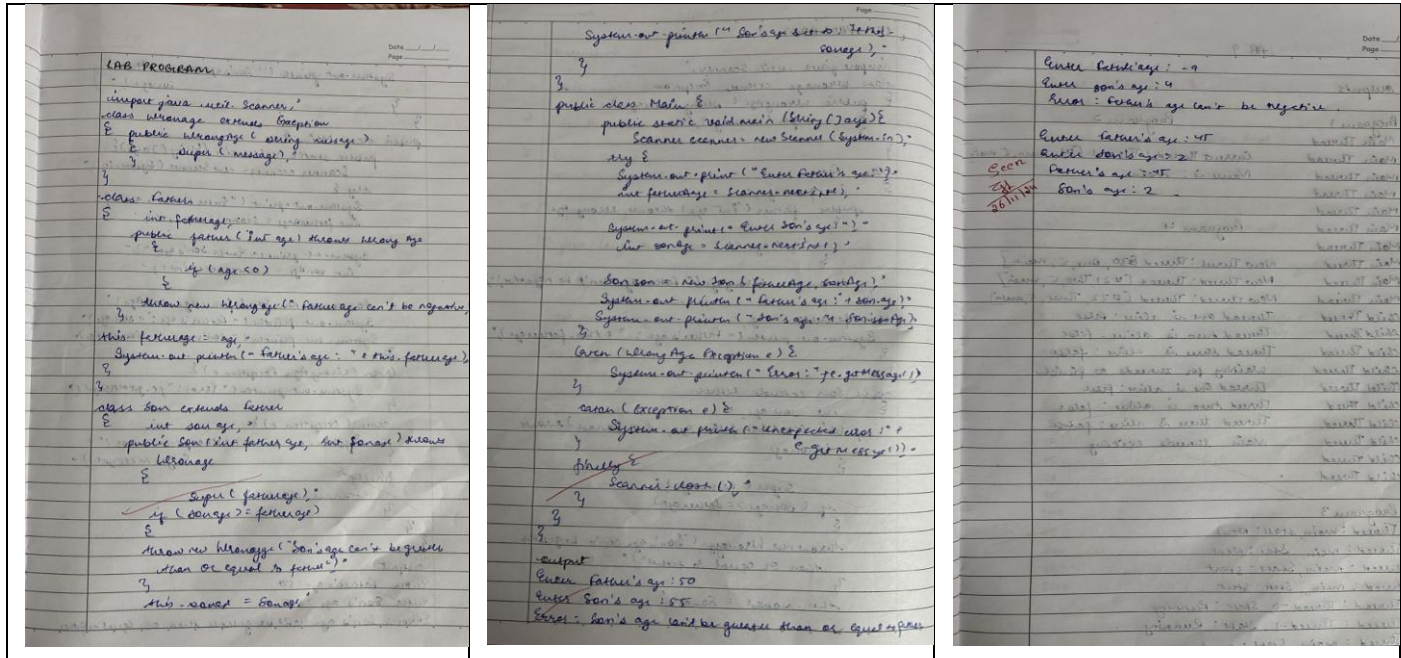 Date
Page
LAB PROGRAM
import java.util.Scanner;
class WrongAge extends Exception
{ public WrongAge (String message)
{ super (message);
}
}
class Father
{ int fatherage;
public father (int age) throws Wrong Age
{
if (age<0)
{
throw new Wrongage (" Father age can't be negative
}
this. fatherage = age;
System.out.println(" Father's age : " + this.fatherage);
}
}
class Son extends Father
{ int sonage;
public Son (int father age, int sonage) throws
Wrongage
{
super ( fatherage);
if (sonage>= fatherage)
{
throw new Wrongage ("Son's age can't be greater
than or equal to father")
}
this. = sonage
Page
System.out.println (" Son's age
sonage);
}
}
public class Main {
public static void main (String [] args){
Scanner scanner = new Scanner (System.in);
try {
System.out.print ("Enter Father's age:")
int fatherage = scanner.nextInt();
System.out.print (" Enter Son's age:")
int sonage = scanner.nextInt()
Son son = new Son ( fatherage, sonAge);
System.out.println (" Father's age:" + son.age)
System.out.println (" Son's age: son.sonAge)
}
catch (WrongAge Exception e) {
System.out.println (" Error: " e.getMessage()
}
catch (Exception e) {
System.out.println (" Unexpected error:" +
} e.getMessage());
finally {
Scanner.close ();
}
}
}
output
Enter Father's age : 50
Enter Son's age : 55
Error: Son's age can't be greater than or equal to father
Date
Page
Enter Father's age : -9
Enter son's age : 4
Error : Father's age can't be negative.
Enter father's age : 45
Enter Son's age : 2
Father's age : 45
Son's age : 2
Seen
26/11/24